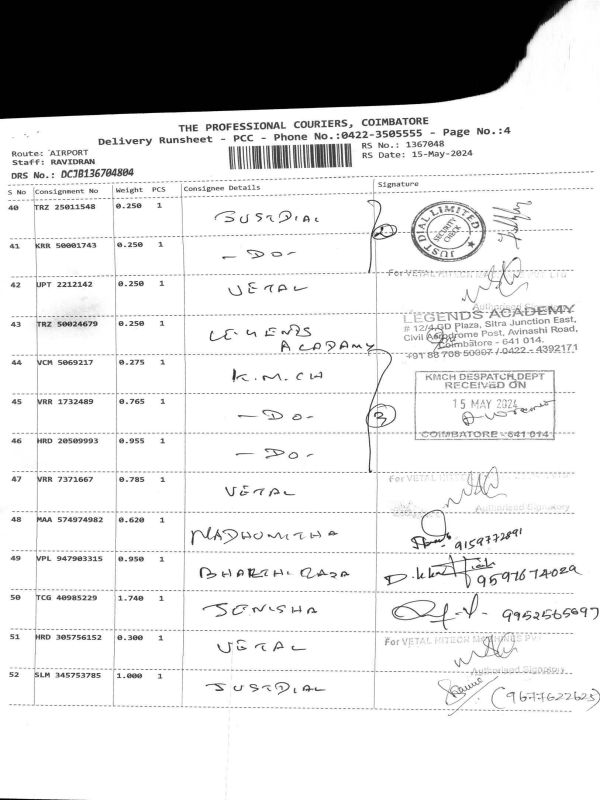 THE PROFESSIONAL COURIERS, COIMBATORE
Delivery Runsheet - PCC - Phone No.:0422-3505555 - Page No.:4
Route: AIRPORT
RS No.: 1367048
Staff: RAVIDRAN
RS Date: 15-May-2024
DRS No.: DCJB136704804
S No Consignment No Weight PCS Consignee Details Signature
40 TRZ 25011548 0.250 1 JUSTDIAL
2
JUST DIAL LIMITED
SECURITY CHECK
41 KRR 50001743 0.250 1 -DO-
For VETAL HITECH
42 UPT 2212142 0.250 1 VETAL
Authorised Signatory
43 TRZ 50024679 0.250 1 LEGENDS ACADAMY
LEGENDS ACADEMY
# 12/4,GD Plaza, Sitra Junction East,
Civil Aerodrome Post, Avinashi Road,
Coimbatore - 641 014.
+91 88 708 50007 / 0422 - 4392171
44 VCM 5069217 0.275 1 K.M.C.H
KMCH DESPATCH DEPT
RECEIVED ON
45 VRR 1732489 0.765 1 -DO-
3
15 MAY 2024
COIMBATORE - 641 014
46 HRD 20509993 0.955 1 -DO-
47 VRR 7371667 0.785 1 VETAL
For VETAL HITECH
Authorised Signatory
48 MAA 574974982 0.620 1 MADHUMITHA
9159772891
49 VPL 947903315 0.950 1 BHARTHI RAJA
9597674029
50 TCG 40985229 1.740 1 JENISHA
9952565097
51 HRD 305756152 0.300 1 VETAL
For VETAL HITECH MACHINES PV
Authorised Signatory
52 SLM 345753785 1.000 1 JUSTDIAL
(9677622625)